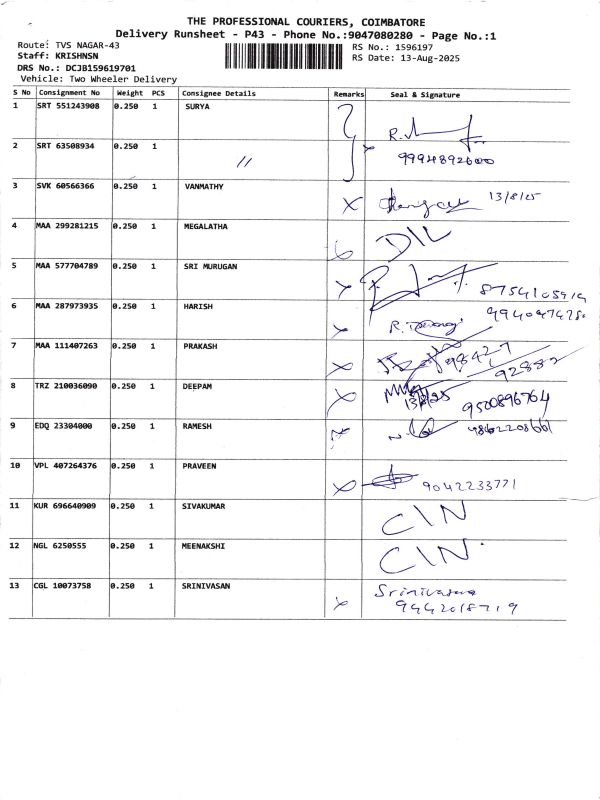 THE PROFESSIONAL COURIERS, COIMBATORE
Delivery Runsheet - P43 - Phone No.:9047080280 - Page No.:1
Route: TVS NAGAR-43
Staff: KRISHNSN
DRS No.: DCJB159619701
Vehicle: Two Wheeler Delivery
RS No.: 1596197
RS Date: 13-Aug-2025
S No Consignment No Weight PCS Consignee Details Remarks Seal & Signature
1 SRT 551243908 0.250 1 SURYA
2 SRT 63508934 0.250 1 〃 9994892600
3 SVK 60566366 0.250 1 VANMATHY 13/8/25
4 MAA 299281215 0.250 1 MEGALATHA DIL
5 MAA 577704789 0.250 1 SRI MURUGAN
6 MAA 287973935 0.250 1 HARISH
7 MAA 111407263 0.250 1 PRAKASH 98427 92882
8 TRZ 210036090 0.250 1 DEEPAM 13/8/25 9500896764
9 EDQ 23304000 0.250 1 RAMESH
10 VPL 407264376 0.250 1 PRAVEEN 9042233771
11 KUR 696640909 0.250 1 SIVAKUMAR CIN
12 NGL 6250555 0.250 1 MEENAKSHI CIN
13 CGL 10073758 0.250 1 SRINIVASAN Srinivasan
9442018719